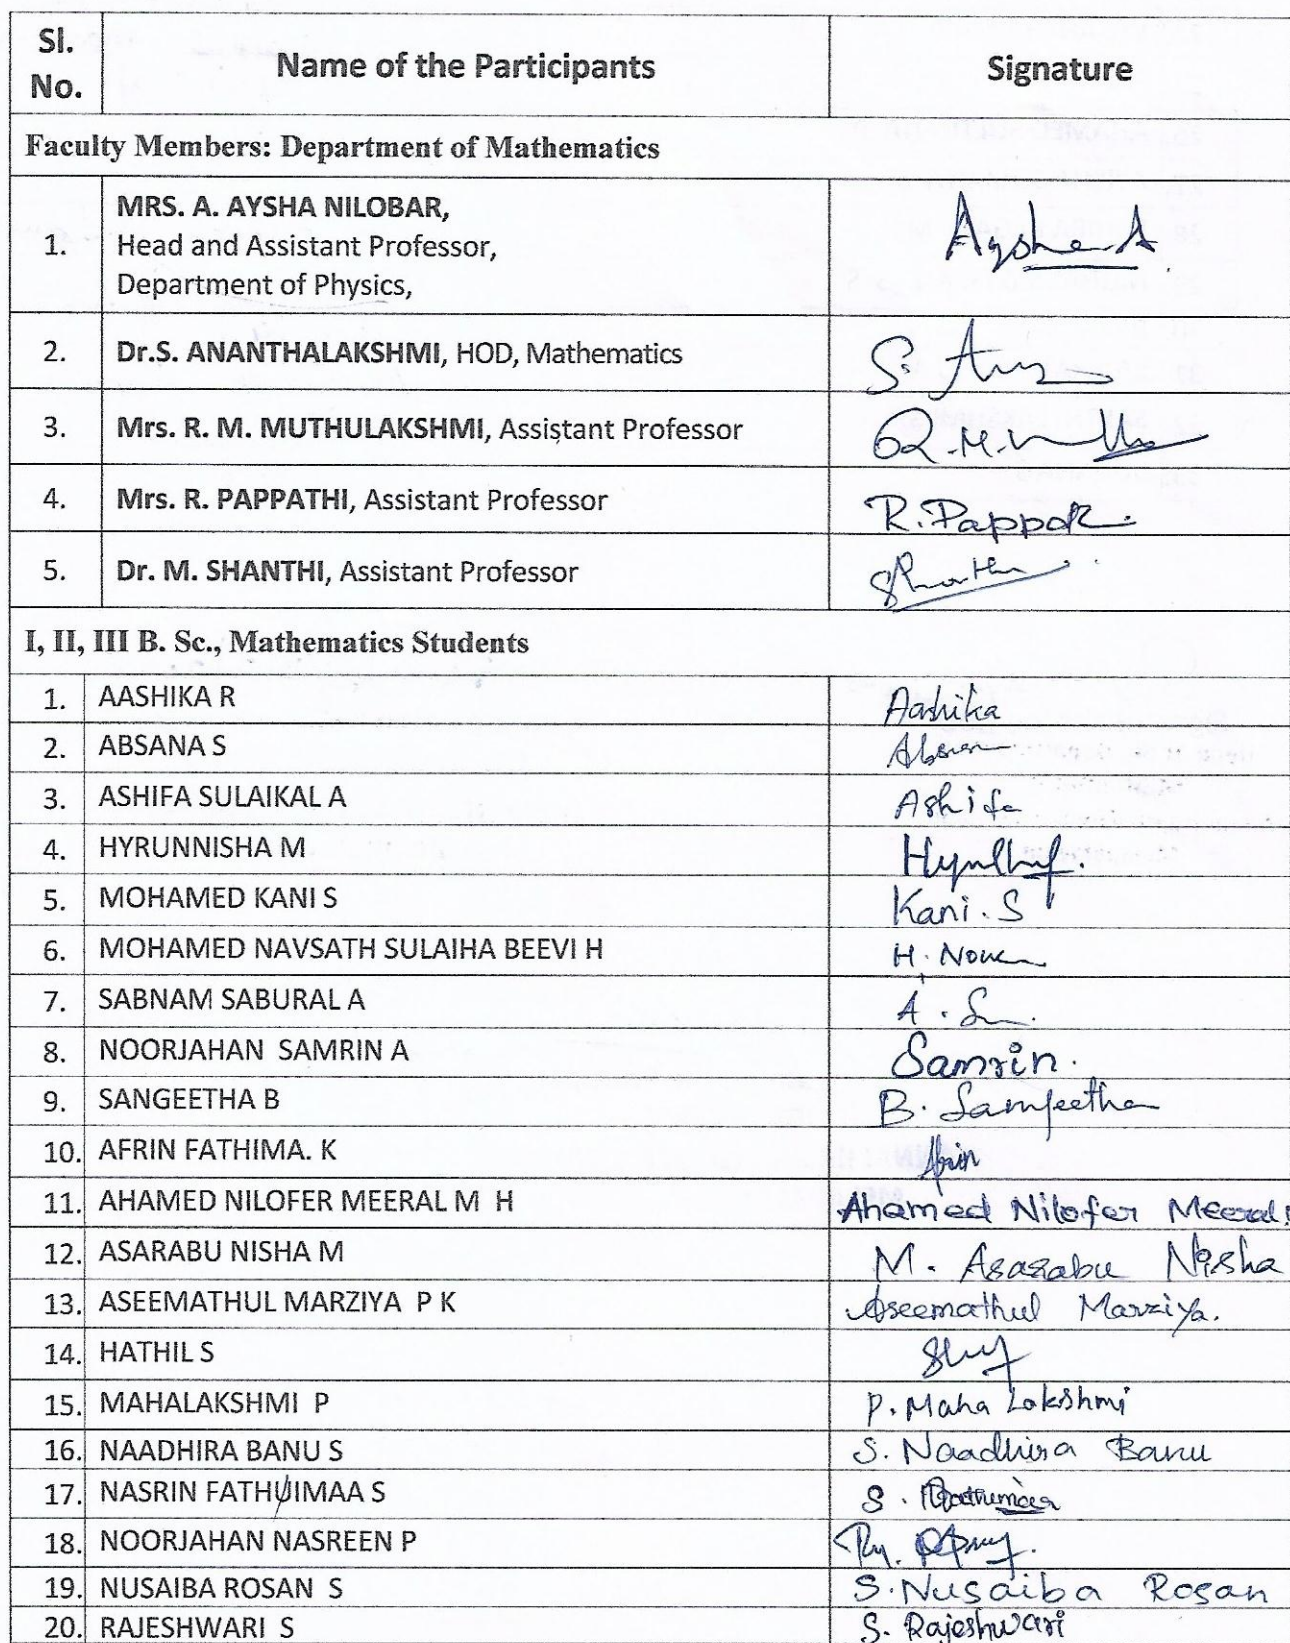 Sl. No. Name of the Participants Signature
Faculty Members: Department of Mathematics
1. MRS. A. AYSHA NILOBAR,
Head and Assistant Professor,
Department of Physics,
Aysha A
2. Dr.S. ANANTHALAKSHMI, HOD, Mathematics
3. Mrs. R. M. MUTHULAKSHMI, Assistant Professor
4. Mrs. R. PAPPATHI, Assistant Professor
5. Dr. M. SHANTHI, Assistant Professor
I, II, III B. Sc., Mathematics Students
1. AASHIKA R Aashika
2. ABSANA S
3. ASHIFA SULAIKAL A Ashifa
4. HYRUNNISHA M
5. MOHAMED KANI S Kani. S
6. MOHAMED NAVSATH SULAIHA BEEVI H
7. SABNAM SABURAL A
8. NOORJAHAN SAMRIN A Samrin.
9. SANGEETHA B B. Sangeetha
10. AFRIN FATHIMA. K
11. AHAMED NILOFER MEERAL M H Ahamed Nilofer Meeral
12. ASARABU NISHA M M. Asarabu Nisha
13. ASEEMATHUL MARZIYA P K Aseemathul Marziya.
14. HATHIL S
15. MAHALAKSHMI P P. Maha Lakshmi
16. NAADHIRA BANU S S. Naadhira Banu
17. NASRIN FATHUIMAA S
18. NOORJAHAN NASREEN P
19. NUSAIBA ROSAN S S. Nusaiba Rosan
20. RAJESHWARI S S. Rajeshwari